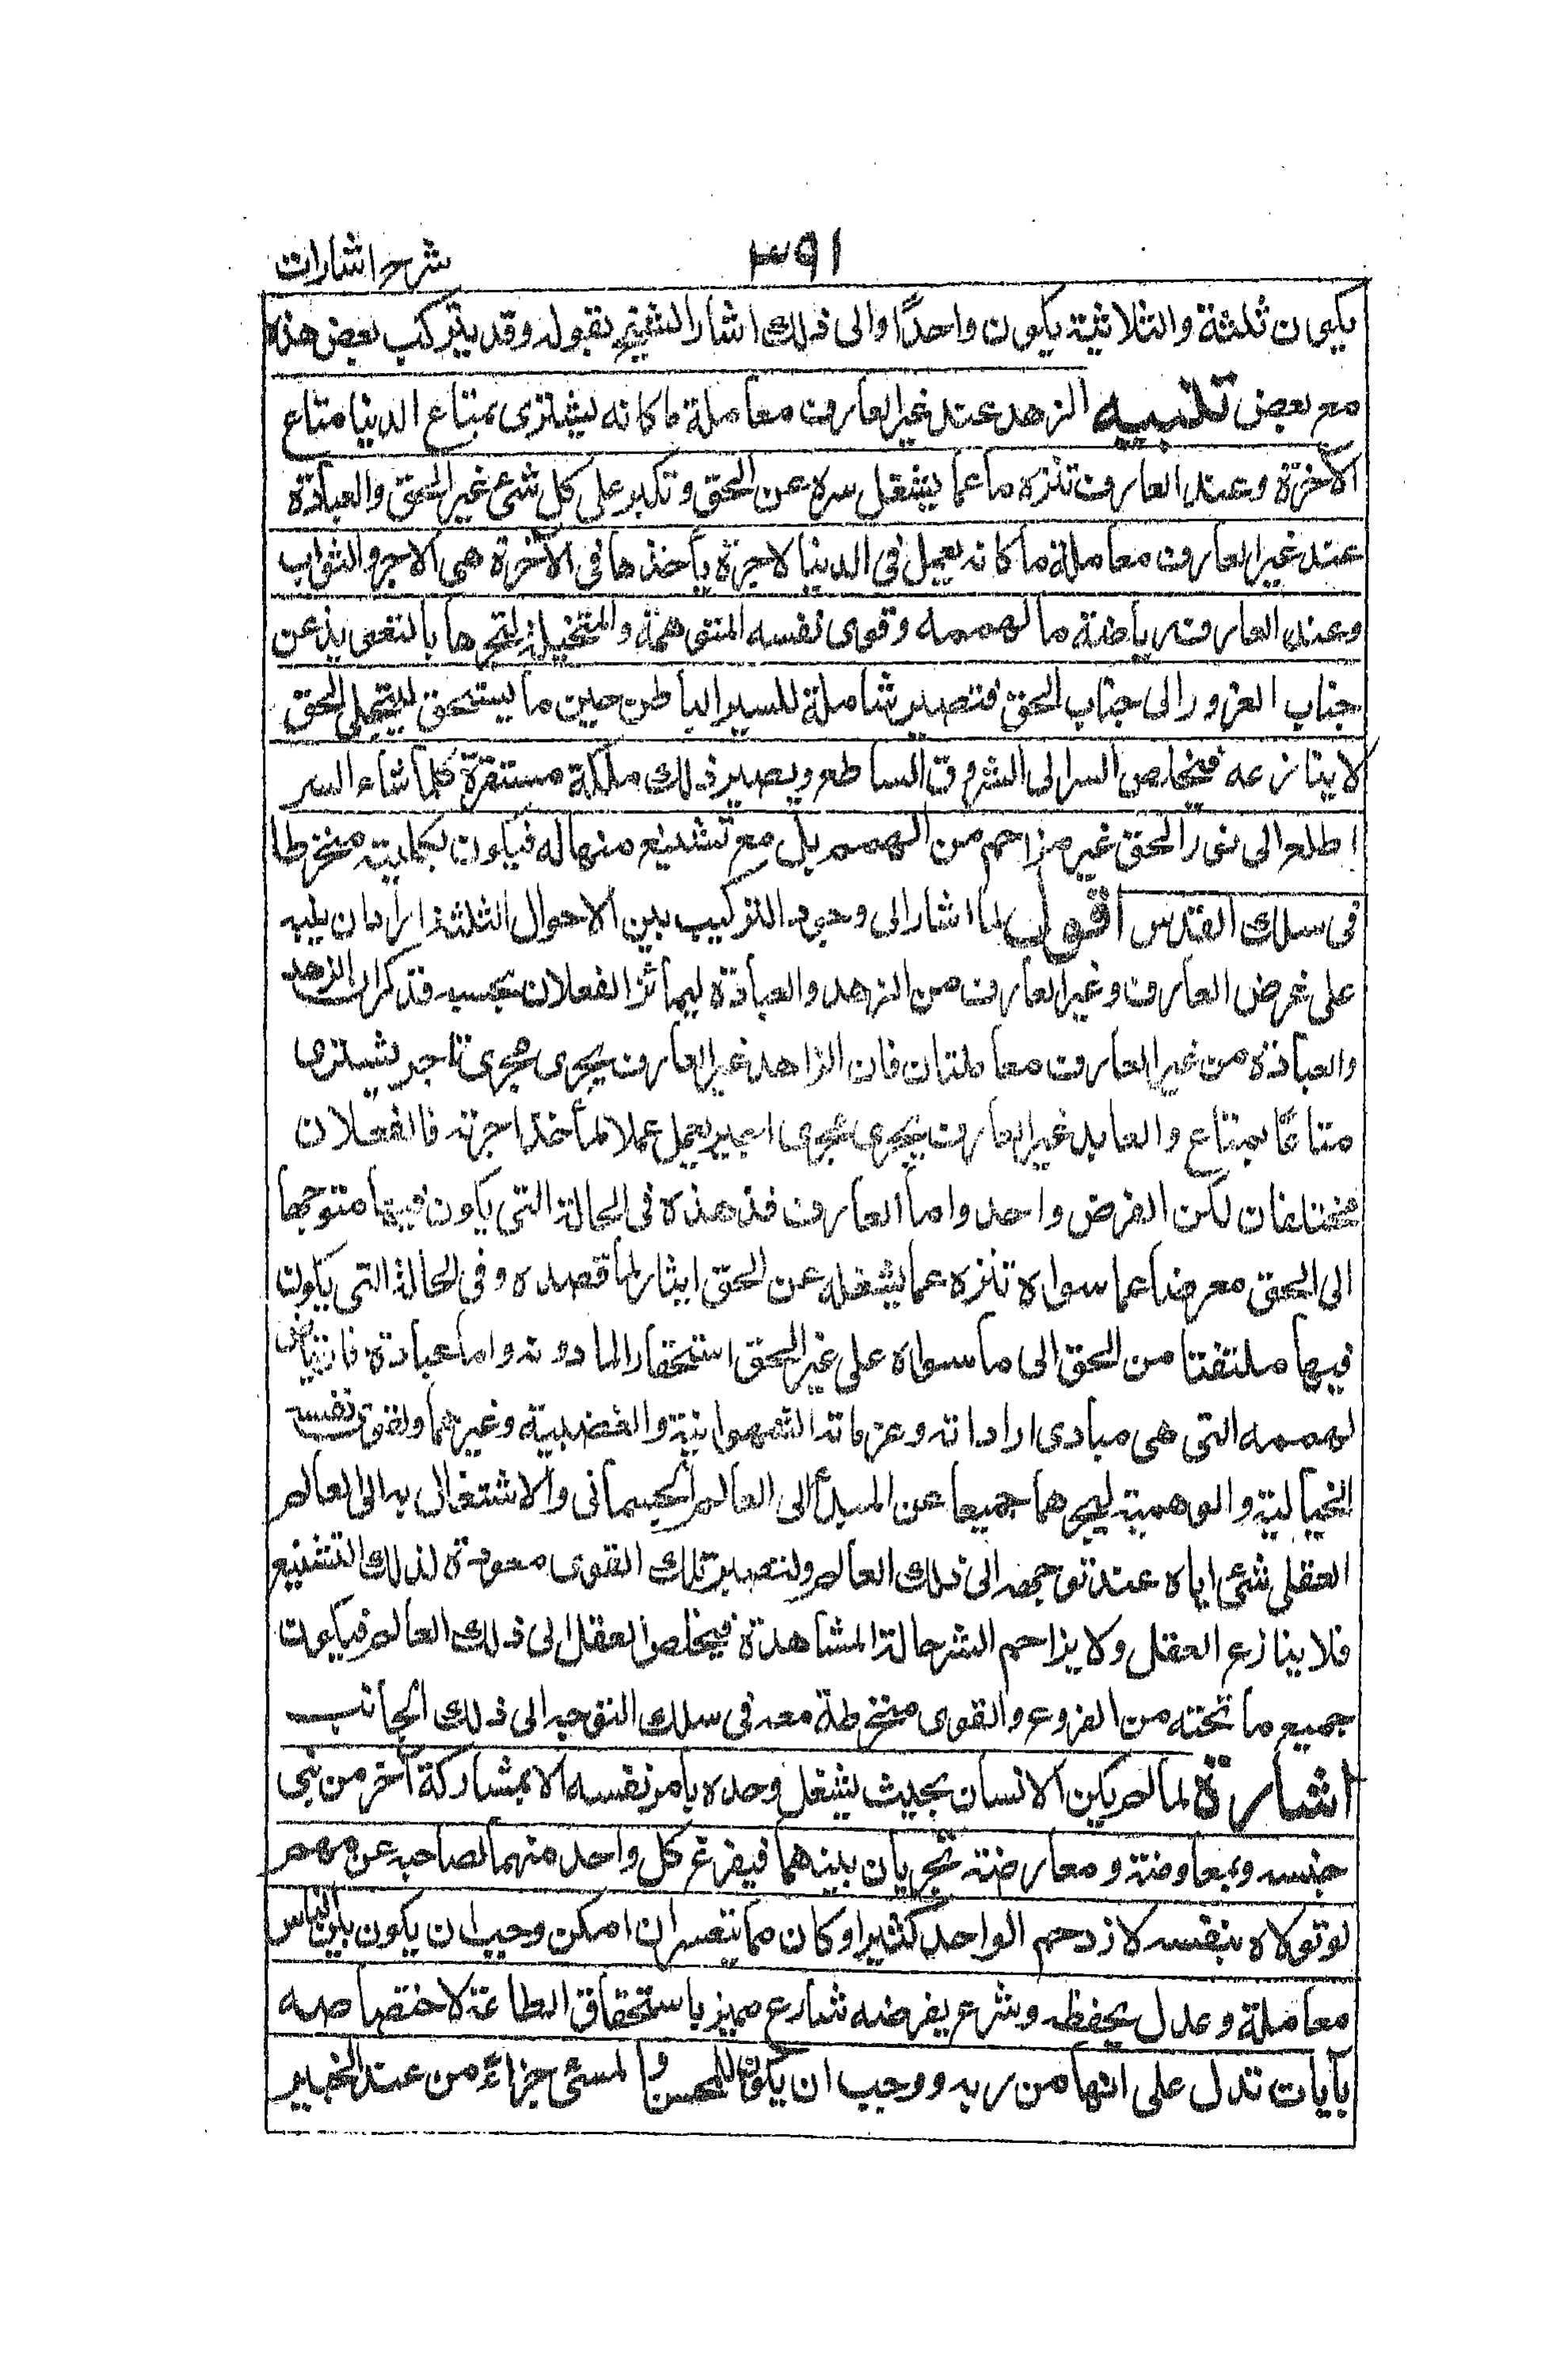 شرح اشارات
٣٩١
يكون ثلثة والثلاثية يكون واحدًا والى ذلك اشار الشيخ بقوله وقد يتركب بعض هذه
مع بعض تنبيه الزهد عند غير العارف معاملة ما كانه يشترى بمتاع الدنيا متاع
الآخرة وعند العارف تنزه ما عما يشغل سره عن الحق وتكبر على كل شئ غير الحق والعبادة
عند غير العارف معاملة ما كانه يعمل فى الدنيا لاجرة يأخذها فى الآخرة هى الاجر والثواب
وعند العارف رياضة ما لهممه وقوى نفسه المتوهمة والمتخيلة ليجرها بالتعويذ عن
جناب الغرور الى جناب الحق فتصير شاملة للسير الباطن حين ما يستحق ليتجلى الحق
لا ينازعه فيخلص السر الى الشروق الساطع ويصير ذلك ملكة مستقرة كلما شاء السر
اطلع الى نور الحق غير مزاحم من الهمم بل مع تشنيع منها له فيكون بكليته منخرطا
فى سلك القدس اقول لما اشار الى وجود التركيب بين الاحوال الثلثة اراد ان ينبه
على غرض العارف وغير العارف من الزهد والعبادة ليمتاز الفعلان بحسبه فذكر ان الزهد
والعبادة من غير العارف معاملتان فان الزاهد غير العارف يجرى مجرى تاجر يشترى
متاعًا بمتاع والعابد غير العارف يجرى مجرى اجير يعمل عملا لمأخذ اجرته فالفعلان
مختلفان لكن الغرض واحد واما العارف فزهده فى الحالة التى يكون فيها متوجها
الى الحق معرضا عما سواه تنزه عما يشغله عن الحق ايثارا لما قصده وفى الحالة التى يكون
فيها ملتفتا من الحق الى ما سواه على غير الحق استحقارا لما دونه واما عبادة فارتياض
لهممه التى هى مبادى اراداته وعزماته الشهوانية والغضبية وغيرهما ولقوى نفسه
الخيالية والوهمية ليجرهما جميعا عن الميل الى العالم الجسمانى والاشتغال به الى العالم
العقلى شئ اياه عند توجهه الى ذلك العالم ولتصير تلك القوى معودة لذلك التشنيع
فلا ينازع العقل ولا يزاحم السر حالة المشاهدة فيخلص العقل الى ذلك العالم فيكون
جميع ما تحته من الفروع والقوى منخرطة معه فى سلك التوجه الى ذلك الجانب
اشارة لما لم يكن الانسان بحيث يشغل وحده بامر نفسه الا بمشاركة آخر من بنى
جنسه وبمعاوضة ومعارضة تجريان بينهما فيفرغ كل واحد منهما لصاحبه عن مهم
لو تولاه بنفسه لازدحم الواحد كثيرا وكان مما يتعسر ان امكن وجب ان يكون بين الناس
معاملة وعدل يحفظه وشرع يفرضه شارع مميز باستحقاق الطاعة لاختصاصه
بآيات تدل على انها من ربه ووجب ان يكون للمحسن والمسئ جزاءً من عند الخبير